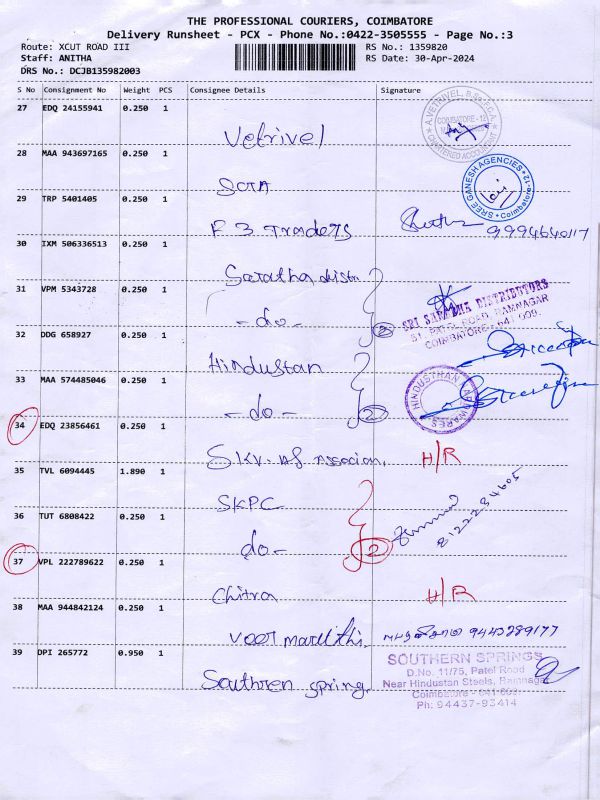 THE PROFESSIONAL COURIERS, COIMBATORE
Delivery Runsheet - PCX - Phone No.:0422-3505555 - Page No.:3
Route: XCUT ROAD III RS No.: 1359820
Staff: ANITHA RS Date: 30-Apr-2024
DRS No.: DCJB135982003
S No Consignment No Weight PCS Consignee Details Signature
27 EDQ 24155941 0.250 1 Vetrivel
A.VETRIVEL, B.Sc,F.C.A. COIMBATORE - 12 CHARTERED ACCOUNTANT
28 MAA 943697165 0.250 1 SGTA
SREE GANESH AGENCIES Coimbatore-12
29 TRP 5401405 0.250 1 F 3 Traders 9994640117
30 IXM 506336513 0.250 1 Saratha distri
31 VPM 5343728 0.250 1 - do - 2
SRI SARADHA DISTRIBUTORS
51 PATEL ROAD, RAMNAGAR
COIMBATORE-641 009.
32 DDG 658927 0.250 1 Hindustan
33 MAA 574485046 0.250 1 - do - 2
HINDUSTHAN HARDWARES
34 EDQ 23856461 0.250 1 SKV. Associan. H/R
35 TVL 6094445 1.890 1 SKPC
36 TUT 6808422 0.250 1 do - 2 8122234605
37 VPL 222789622 0.250 1 Chitra H/R
38 MAA 944842124 0.250 1 Veer maruthi. 9443289177
39 DPI 265772 0.950 1 Southren spring.
SOUTHERN SPRINGS
D.No. 11/75, Patel Road
Near Hindustan Steels, Ramnagar
Coimbatore - 641 009
Ph: 94437-93414